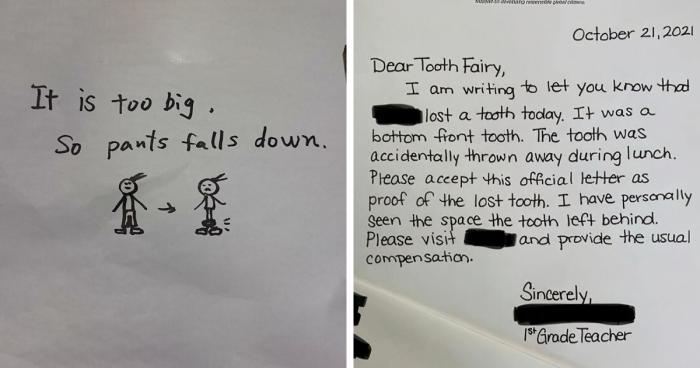 It is too big.
So pants falls down.
October 21, 2021
Dear Tooth Fairy,
I am writing to let you know that
lost a tooth today. It was a
bottom front tooth. The tooth was
accidentally thrown away during lunch.
Please accept this official letter as
proof of the lost tooth. I have personally
seen the space the tooth left behind.
Please visit and provide the usual
compensation.
Sincerely,
1st Grade Teacher